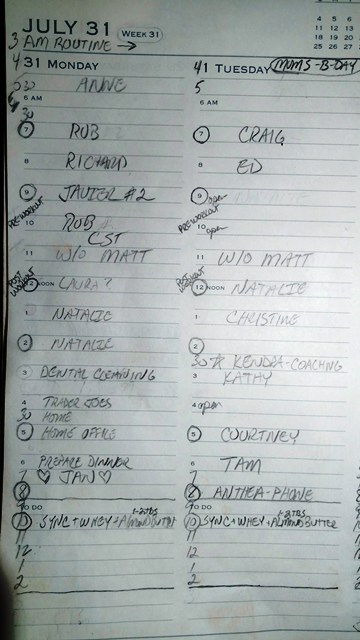 JULY 31 WEEK 31
4 5 6
11 12 13
18 19 20
25 26 27
3 AM ROUTINE →
4 31 MONDAY
5 30 ANNE
6 AM
30
7 ROB
8 RICHARD
9 JAVIER #2
PRE WORKOUT
10 ROB
CST
11 W/O MATT
POST WORKOUT
12 NOON LAURA?
1 NATALIE
2 NATALIE
3 DENTAL CLEANING
4 TRADER JOES
30 HOME
5 HOME OFFICE
6 PREPARE DINNER
7 ♡ JAN ♡
8
TO DO
1-2 TBS
10 SYNC+WHEY+ALMOND BUTTER
11
12
1
2
4 1 TUESDAY MOMS-B-DAY
5
6 AM
7 CRAIG
8 ED
9 open
PRE WORKOUT
10 open
11 W/O MATT
POST WORKOUT
12 NOON NATALIE
1 CHRISTINE
2
30 ☆ KENDRA-COACHING
3 KATHY
4 open
5 COURTNEY
6 TAM
7
8 ANTHEA-PHONE
TO DO
1-2 TBS
10 SYNC+WHEY+ALMOND BUTTER
11
12
1
2